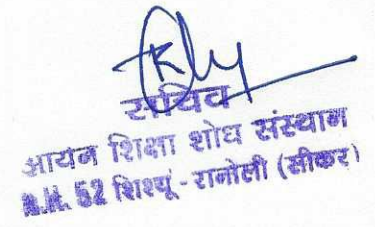 सचिव
आर्यन शिक्षा शोध संस्थान
N.H. 52 शिश्यू - रानोली (सीकर)